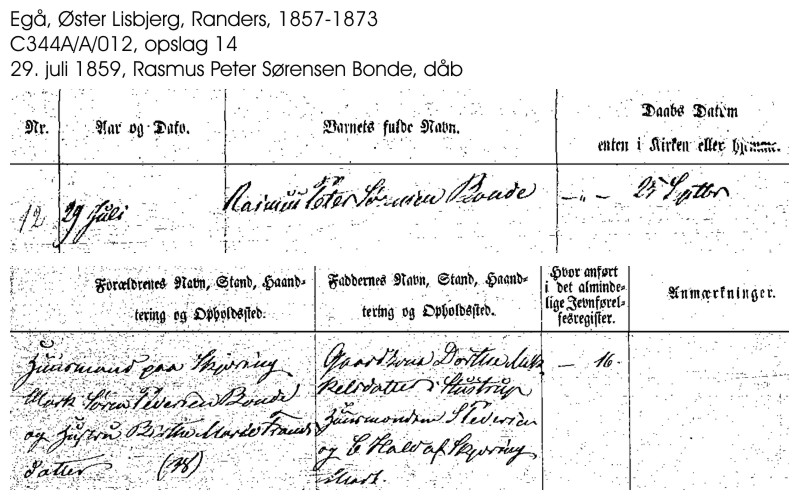 Egå, Øster Lisbjerg, Randers, 1857-1873
C344A/A/012, opslag 14
29. juli 1859, Rasmus Peter Sørensen Bonde, dåb
Nr.
Aar og Dato.
Barnets fulde Navn.
Daabs Datum
enten i Kirken eller hjemme.
12
29 Juli
Rasmus Peter Sørensen Bonde
— „ — 25 Septbr
Forældrenes Navn, Stand, Haand-
tering og Opholdssted.
Faddernes Navn, Stand, Haand-
tering og Opholdssted.
Hvor anført
i det alminde-
lige Jevnførel-
sesregister.
Anmærkninger.
Huusmand paa Skjøring
Mark Søren Pedersen Bonde
og Hustru Birthe Marie Frands
datter (38)
Gaardkone Dorthe Mik
kelsdatter i Hustrup
Huusmændene S Pedersen
og C Hald af Skjøring
Mark.
— 16.